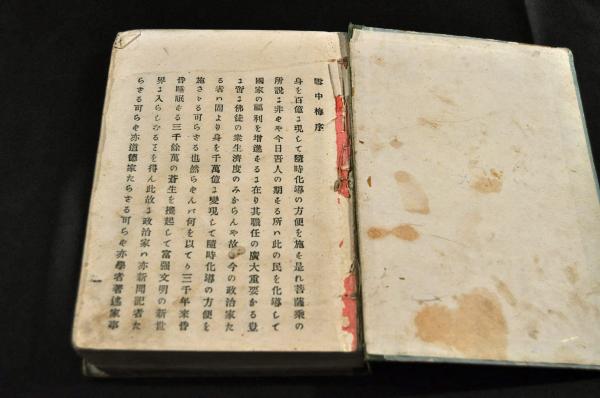 雪中梅序
身を百億ま現して隨時化導の方便を施を是れ菩薩乘の
所説ま非をや今日吾人の期をる所ハ此の民を化導して
國家の福利を增進をるま在り其職任の廣大重要かる豈
ま啻ま佛徒の衆生濟度のみからんや故ま今の政治家た
る者ハ固より身を千萬億ま變現して隨時化導の方便を
施さゞる可らざる也然らをんバ何を以てか三千年來昏
昏睡眠をる三千餘萬の蒼生を攪起して富强文明の新世
界ま入らしむるとを得ん此故ま政治家ハ亦新聞記者た
らざる可らを亦道德家たらざる可らを亦學者著述家事